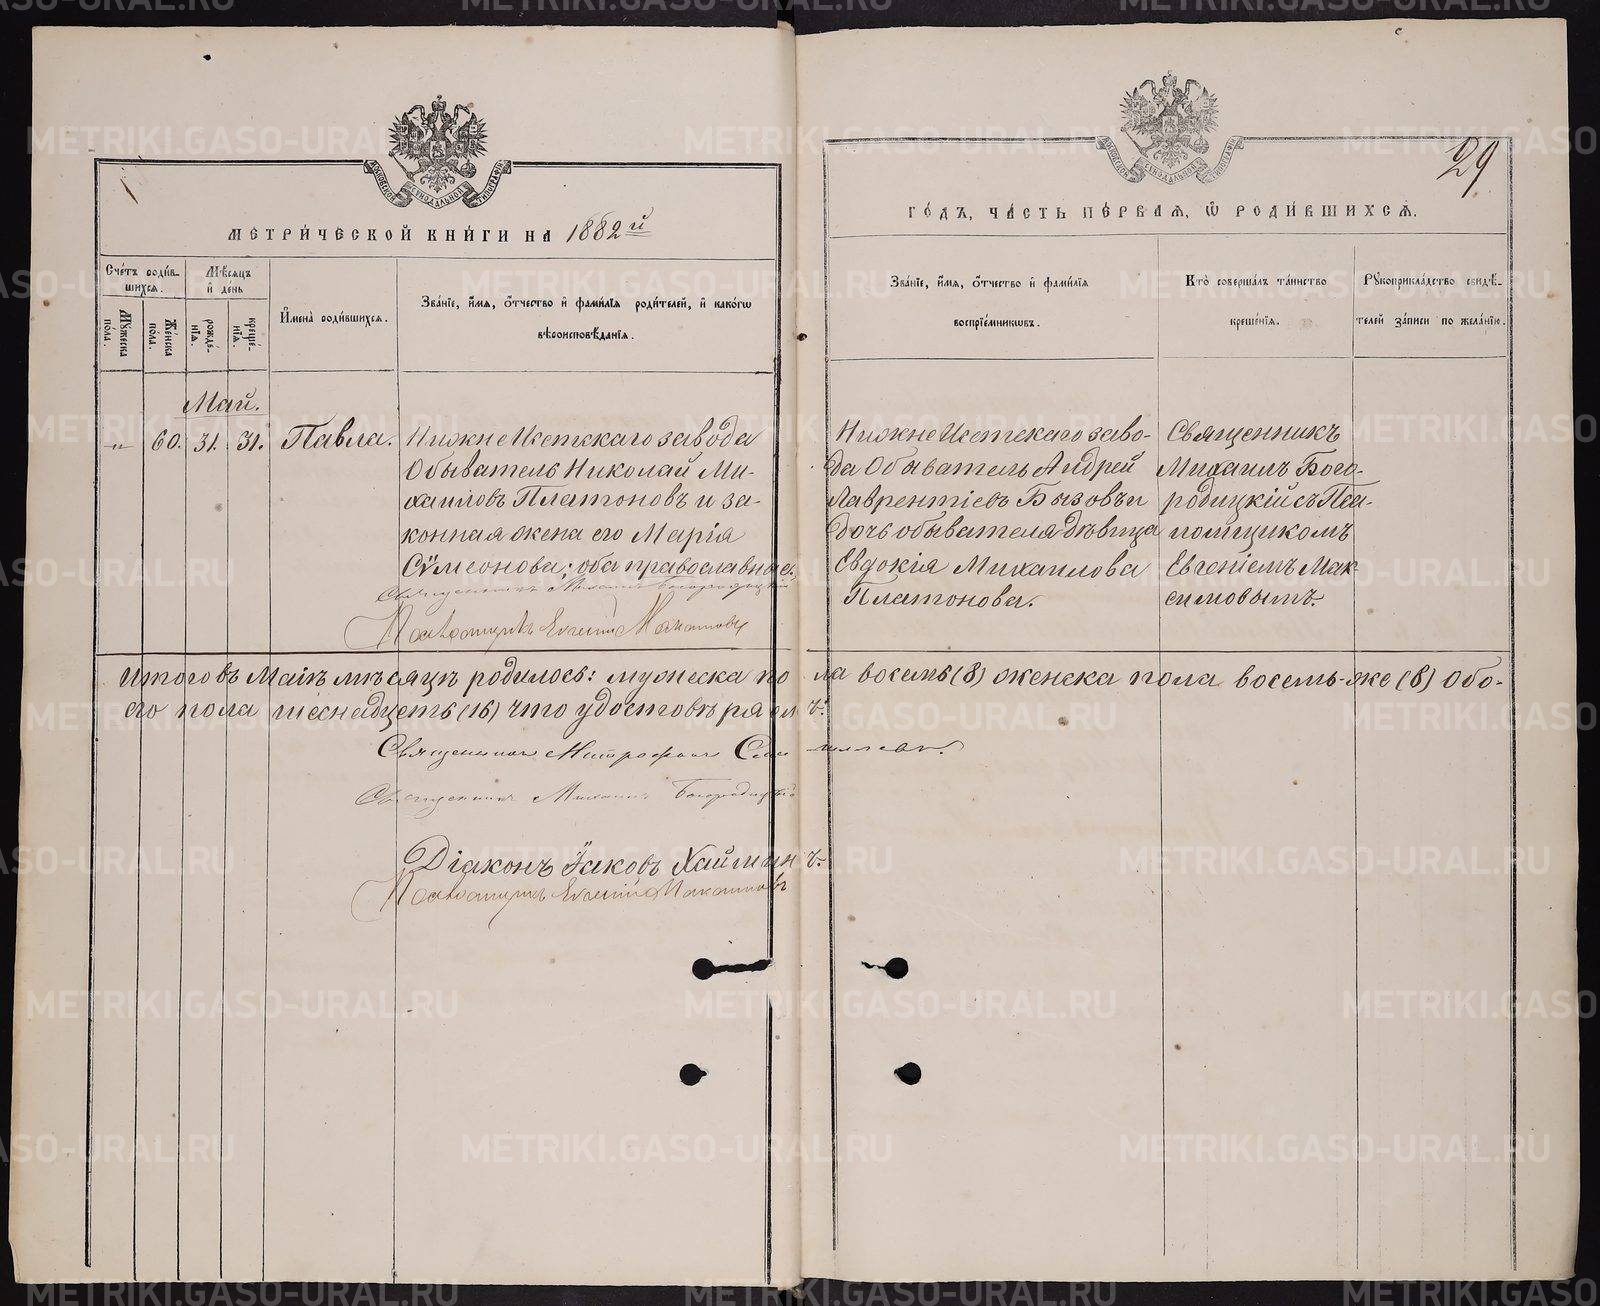 29
МОСКОВСКОЙ СѴНОДАЛЬНОЙ ТИПОГРАФІИ
МОСКОВСКОЙ СѴНОДАЛЬНОЙ ТИПОГРАФІИ
МЕТРИ́ЧЕСКОЙ КНИ́ГИ НА 1882й
ГО́ДЪ, ЧА́СТЬ ПЕ́РВАЯ, Ѽ РОДИ́ВШИХСѦ.
Сче́тъ роди́вшихсѧ.
Мꙋ́жеска по́ла.
Же́нска пола.
Мѣ́сяцъ и҆ де́нь
рожде́нїѧ.
креще́нїѧ.
И҆мена̀ роди́вшихсѧ.
Зва́нїе, и҆́мѧ, ѻ҆́тчество и҆ фами́лїѧ роди́телей, и҆ како́гѡ вѣроисповѣ́данїѧ.
Зва́нїе, и҆́мѧ, ѻ҆́тчество и҆ фами́лїѧ воспрїе́мникѡвъ.
Кто̀ соверша́лъ та́инство креще́нїѧ.
Рꙋкоприкла́дство свидѣ́телей за́писи по жела́нїю.
Май.
" 60. 31. 31. Павла.
Нижне Исетскаго завода
Обыватель Николай Ми-
хаиловъ Платоновъ и за-
конная жена его Марія
Сѵмеонова; оба православные.
Священникъ Михаилъ Богородицкій
Псаломщикъ Евгеній Максимовъ
Нижне Исетскаго заво-
да Обыватель Андрей
Лаврентіевъ Бызовъ и
дочь обывателя дѣвица
Евдокія Михаилова
Платонова.
Священникъ
Михаилъ Бого-
родицкій съ Пса-
ломщикомъ
Евгеніемъ Мак-
симовымъ.
Итого въ Маѣ мѣсяцѣ родилось: мужеска пола восемь (8) женска пола восемь-же (8) Обо-
его пола шеснадцеть (16) что удостовѣряемъ:
Священникъ Митрофанъ
Священникъ Михаилъ Богородицкій
Діаконъ Іаковъ Хайминъ.
Псаломщикъ Евгеній Максимовъ
METRIKI.GASO-URAL.RU